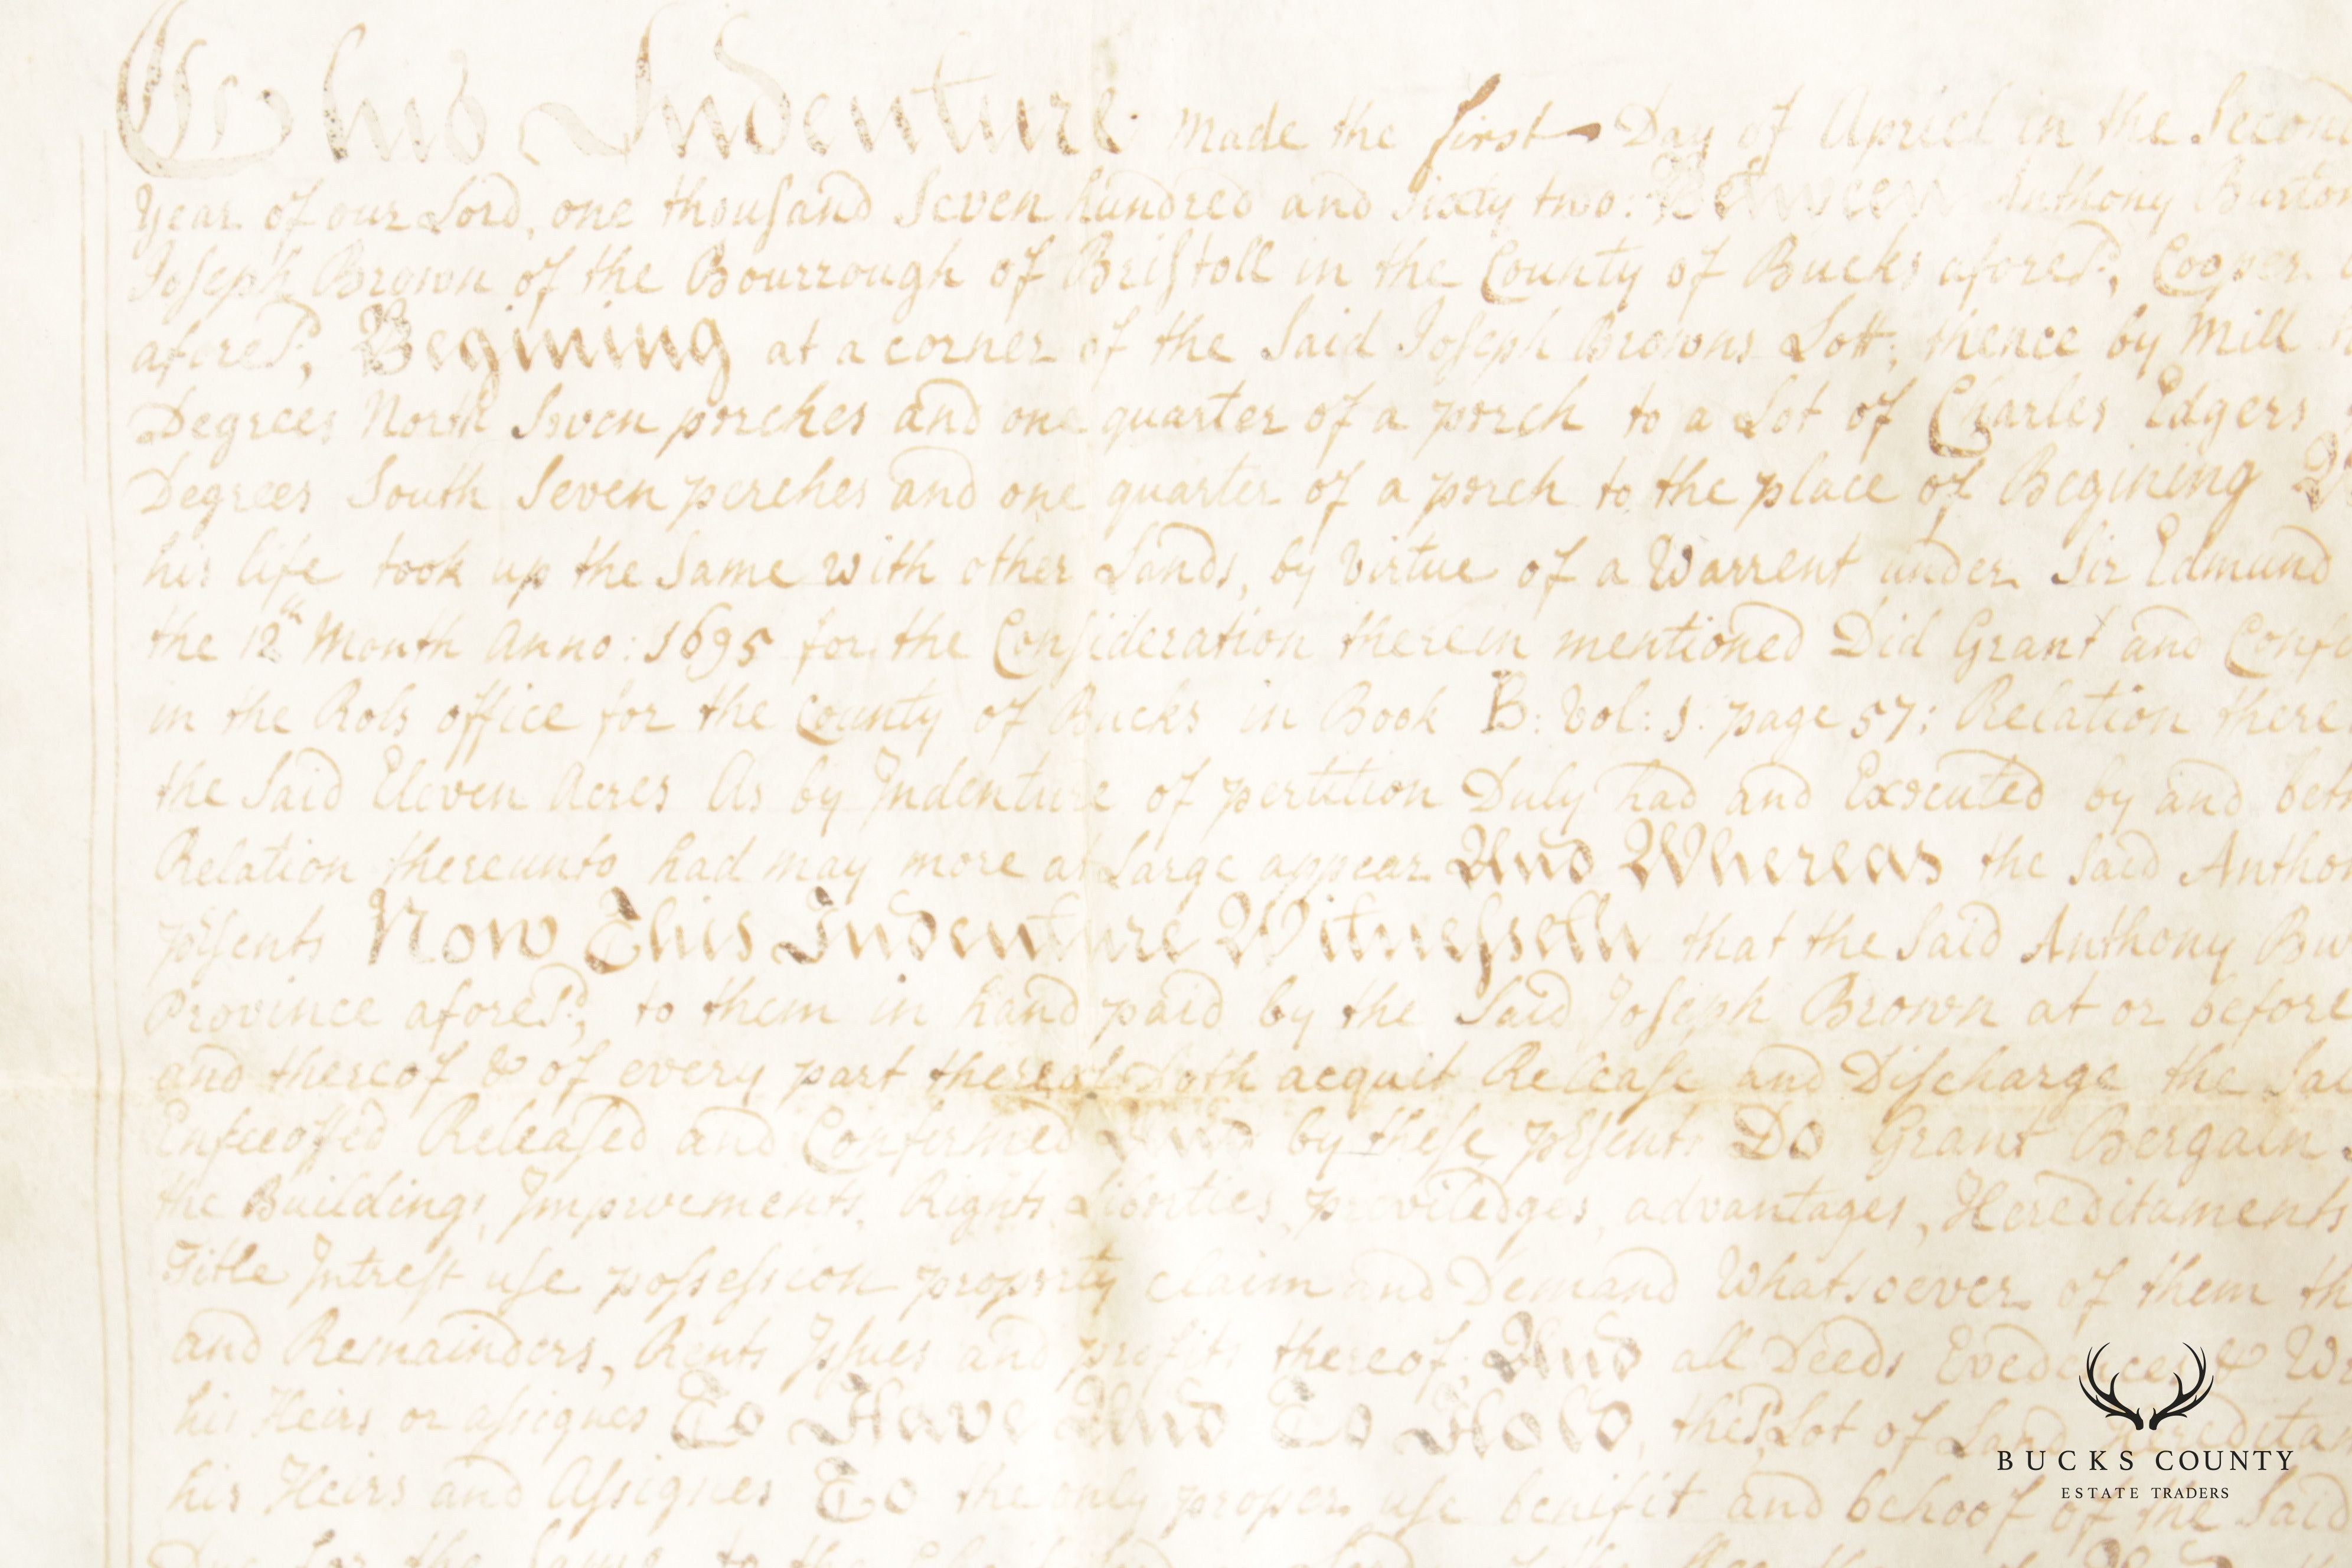 This Indenture Made the first Day of Apriel in the Second
Year of our Lord, one thousand Seven hundred and sixty two: Between Anthony Burton
Joseph Brown of the Bourrough of Bristoll in the County of Bucks afores.d, Cooper
afores.d, Begining at a corner of the Said Joseph Browns Lott; thence by Mill
Degrees North Seven perches and one quarter of a perch to a Lot of Charles Edgers
Degrees South Seven perches and one quarter of a perch to the place of Begining
his life took up the Same with other Lands, by Virtue of a Warrent under Sir Edmund
the 12th Month Anno: 1695 for the Consideration therein mentioned Did Grant and Conf
in the Rols office for the County of Bucks in Book B: Vol: 1. page 57: Relation there
the Said Eleven Acres As by Indenture of pertition Duly had and Executed by and bet
Relation thereunto had may more at Large appear And Whereas the Said Anthon
psents Now This Indenture Witnesseth that the Said Anthony Bu
Province afores.d, to them in hand paid by the Said Joseph Brown at or before
and thereof & of every part thereof Doth acquit Release and Discharge the Sa
Enfeoffed Released and Confirmed And by these psents Do Grant Bergain
the Buildings, Improvements, Rights, Liberties, priviledges, advantages, Hereditaments
Title Intrest use possession property claim and Demand Whatsoever of them th
and Remainders, Rents Issues and profits thereof; And all Deeds Evedences & Wr
his Heirs or assignes To Have And To Hold, the s.d Lot of Land Heredita
his Heirs and Assignes To the only proper use benifit and behoof of the Said
BUCKS COUNTY
ESTATE TRADERS